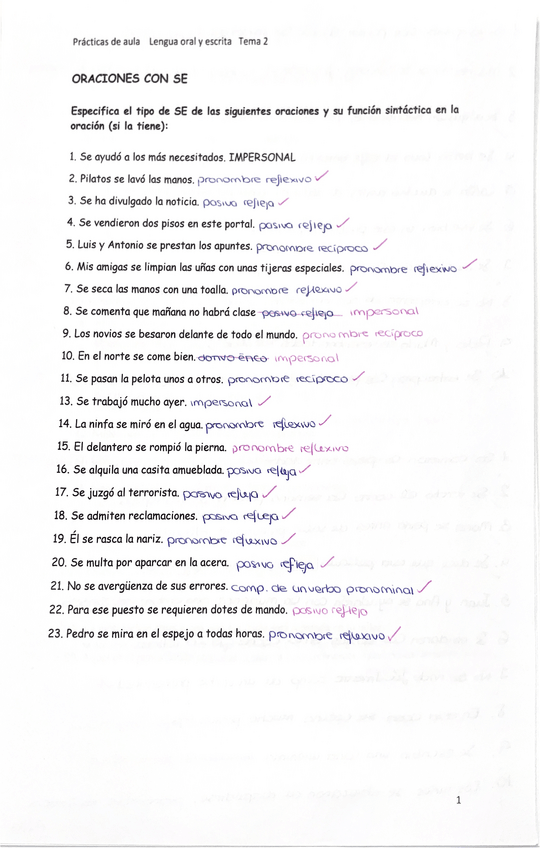 Prácticas de aula Lengua oral y escrita Tema 2
ORACIONES CON SE
Especifica el tipo de SE de las siguientes oraciones y su función sintáctica en la
oración (si la tiene):
1. Se ayudó a los más necesitados. IMPERSONAL
2. Pilatos se lavó las manos. pronombre reflexivo ✓
3. Se ha divulgado la noticia. pasiva refleja ✓
4. Se vendieron dos pisos en este portal. pasiva refleja ✓
5. Luis y Antonio se prestan los apuntes. pronombre recíproco ✓
6. Mis amigas se limpian las uñas con unas tijeras especiales. pronombre reflexivo ✓
7. Se seca las manos con una toalla. pronombre reflexivo ✓
8. Se comenta que mañana no habrá clase pasiva refleja impersonal
9. Los novios se besaron delante de todo el mundo. pronombre recíproco
10. En el norte se come bien. dativo ético impersonal
11. Se pasan la pelota unos a otros. pronombre recíproco ✓
13. Se trabajó mucho ayer. impersonal ✓
14. La ninfa se miró en el agua. pronombre reflexivo ✓
15. El delantero se rompió la pierna. pronombre reflexivo
16. Se alquila una casita amueblada. pasiva refleja ✓
17. Se juzgó al terrorista. pasiva refleja ✓
18. Se admiten reclamaciones. pasiva refleja ✓
19. Él se rasca la nariz. pronombre reflexivo ✓
20. Se multa por aparcar en la acera. pasiva refleja ✓
21. No se avergüenza de sus errores. comp. de un verbo pronominal ✓
22. Para ese puesto se requieren dotes de mando. pasiva refleja
23. Pedro se mira en el espejo a todas horas. pronombre reflexivo ✓
1